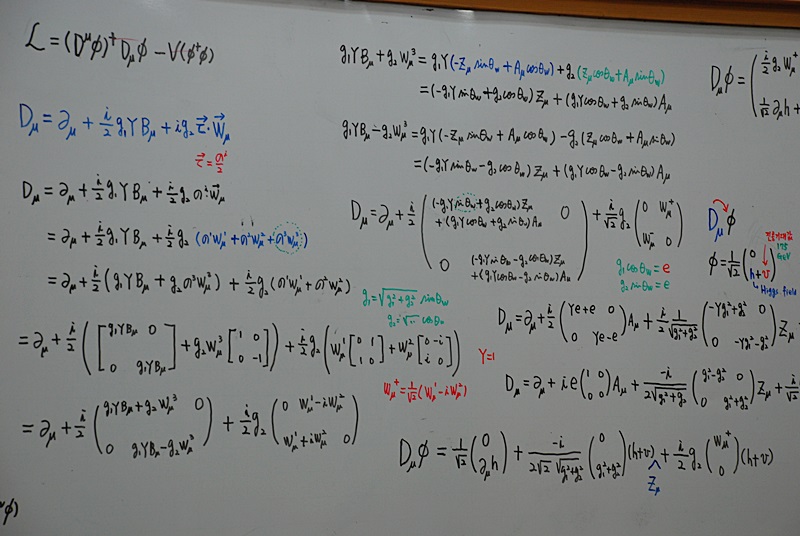 ℒ = (D^μ φ)^† D_μ φ − V(φ^†φ)
D_μ = ∂_μ + i/2 g₁YB_μ + i g₂ τ⃗·W⃗_μ
τ⃗ = σ^i/2
D_μ = ∂_μ + i/2 g₁YB_μ + i/2 g₂ σ^i W⃗_μ
= ∂_μ + i/2 g₁YB_μ + i/2 g₂ (σ¹W_μ¹ + σ²W_μ² + σ³W_μ³)
= ∂_μ + i/2 (g₁YB_μ + g₂σ³W_μ²) + i/2 g₂(σ¹W_μ¹ + σ²W_μ²)
= ∂_μ + i/2 ( [g₁YB_μ 0; 0 g₁YB_μ] + g₂W_μ³ [1 0; 0 −1] ) + i/2 g₂ ( W_μ¹ [0 1; 1 0] + W_μ² [0 −i; i 0] )
= ∂_μ + i/2 (g₁YB_μ + g₂W_μ³ 0; 0 g₁YB_μ − g₂W_μ³) + i/2 g₂ (0 W_μ¹ − iW_μ²; W_μ¹ + iW_μ² 0)
μφ)
g₁YB_μ + g₂W_μ³ = g₁Y(−Z_μ sinθ_w + A_μ cosθ_w) + g₂(Z_μ cosθ_w + A_μ sinθ_w)
= (−g₁Y sinθ_w + g₂cosθ_w) Z_μ + (g₁Y cosθ_w + g₂ sinθ_w) A_μ
g₁YB_μ − g₂W_μ³ = g₁Y(−Z_μ sinθ_w + A_μ cosθ_w) − g₂(Z_μ cosθ_w + A_μ sinθ_w)
= (−g₁Y sinθ_w − g₂cosθ_w) Z_μ + (g₁Y cosθ_w − g₂ sinθ_w) A_μ
D_μ = ∂_μ + i/2 ((−g₁Y sinθ_w + g₂cosθ_w)Z_μ + (g₁Y cosθ_w + g₂ sinθ_w)A_μ 0; 0 (−g₁Y sinθ_w − g₂cosθ_w)Z_μ + (g₁Y cosθ_w − g₂ sinθ_w)A_μ) + i/√2 g₂ (0 W_μ⁺; W_μ⁻ 0)
g₁ cosθ_w = e
g₂ sinθ_w = e
g₁ = √(g₁² + g₂²) sinθ_w
g₂ = √‥ cosθ_w
Y=1
W_μ⁺ = 1/√2 (W_μ¹ − iW_μ²)
D_μ = ∂_μ + i/2 (Ye+e 0; 0 Ye−e) A_μ + i/2 1/√(g₁²+g₂²) (−Yg₁²+g₂² 0; 0 −Yg₁²−g₂²) Z_μ
D_μ = ∂_μ + i e (1 0; 0 0) A_μ + −i/2√(g₁²+g₂²) (g₁²−g₂² 0; 0 g₁²+g₂²) Z_μ + i/√2
D_μ φ = 1/√2 (0; ∂_μ h) + −i/2√2 √(g₁²+g₂²) (0; g₁²+g₂²) (h+v) + i/2 g₂ (W_μ⁺; 0) (h+v)
Z_μ
D_μ φ = (i/2 g₂ W_μ⁺; 1/√2 ∂_μ h +
D_μ φ
φ = 1/√2 (0; h+v)
Higgs field
GeV